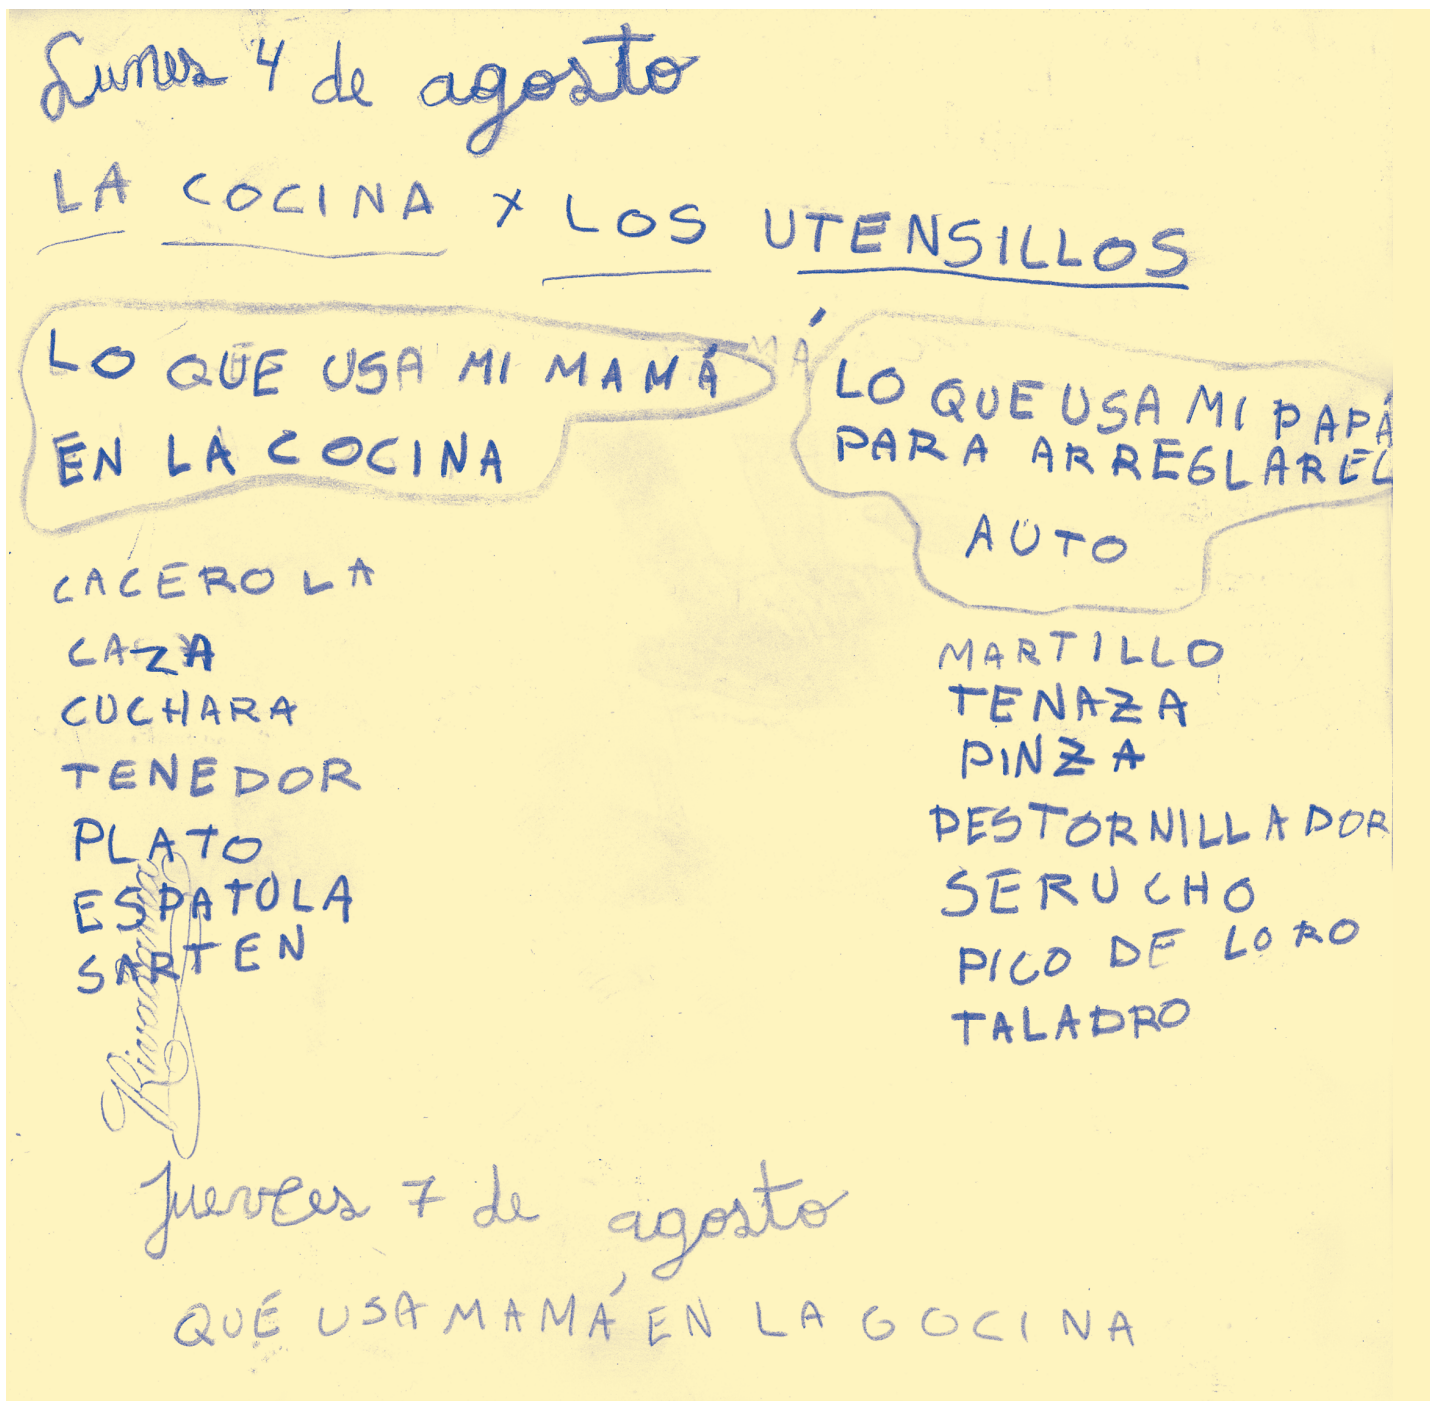 Lunes 4 de agosto
LA COCINA x LOS UTENSILLOS
LO QUE USA MI MAMÁ
EN LA COCINA
CACEROLA
CAZA
CUCHARA
TENEDOR
PLATO
ESPATULA
SARTEN
LO QUE USA MI PAPÁ
PARA ARREGLAR EL
AUTO
MARTILLO
TENAZA
PINZA
DESTORNILLADOR
SERUCHO
PICO DE LORO
TALADRO
Rivadavia
Jueves 7 de agosto
QUÉ USA MAMÁ EN LA COCINA